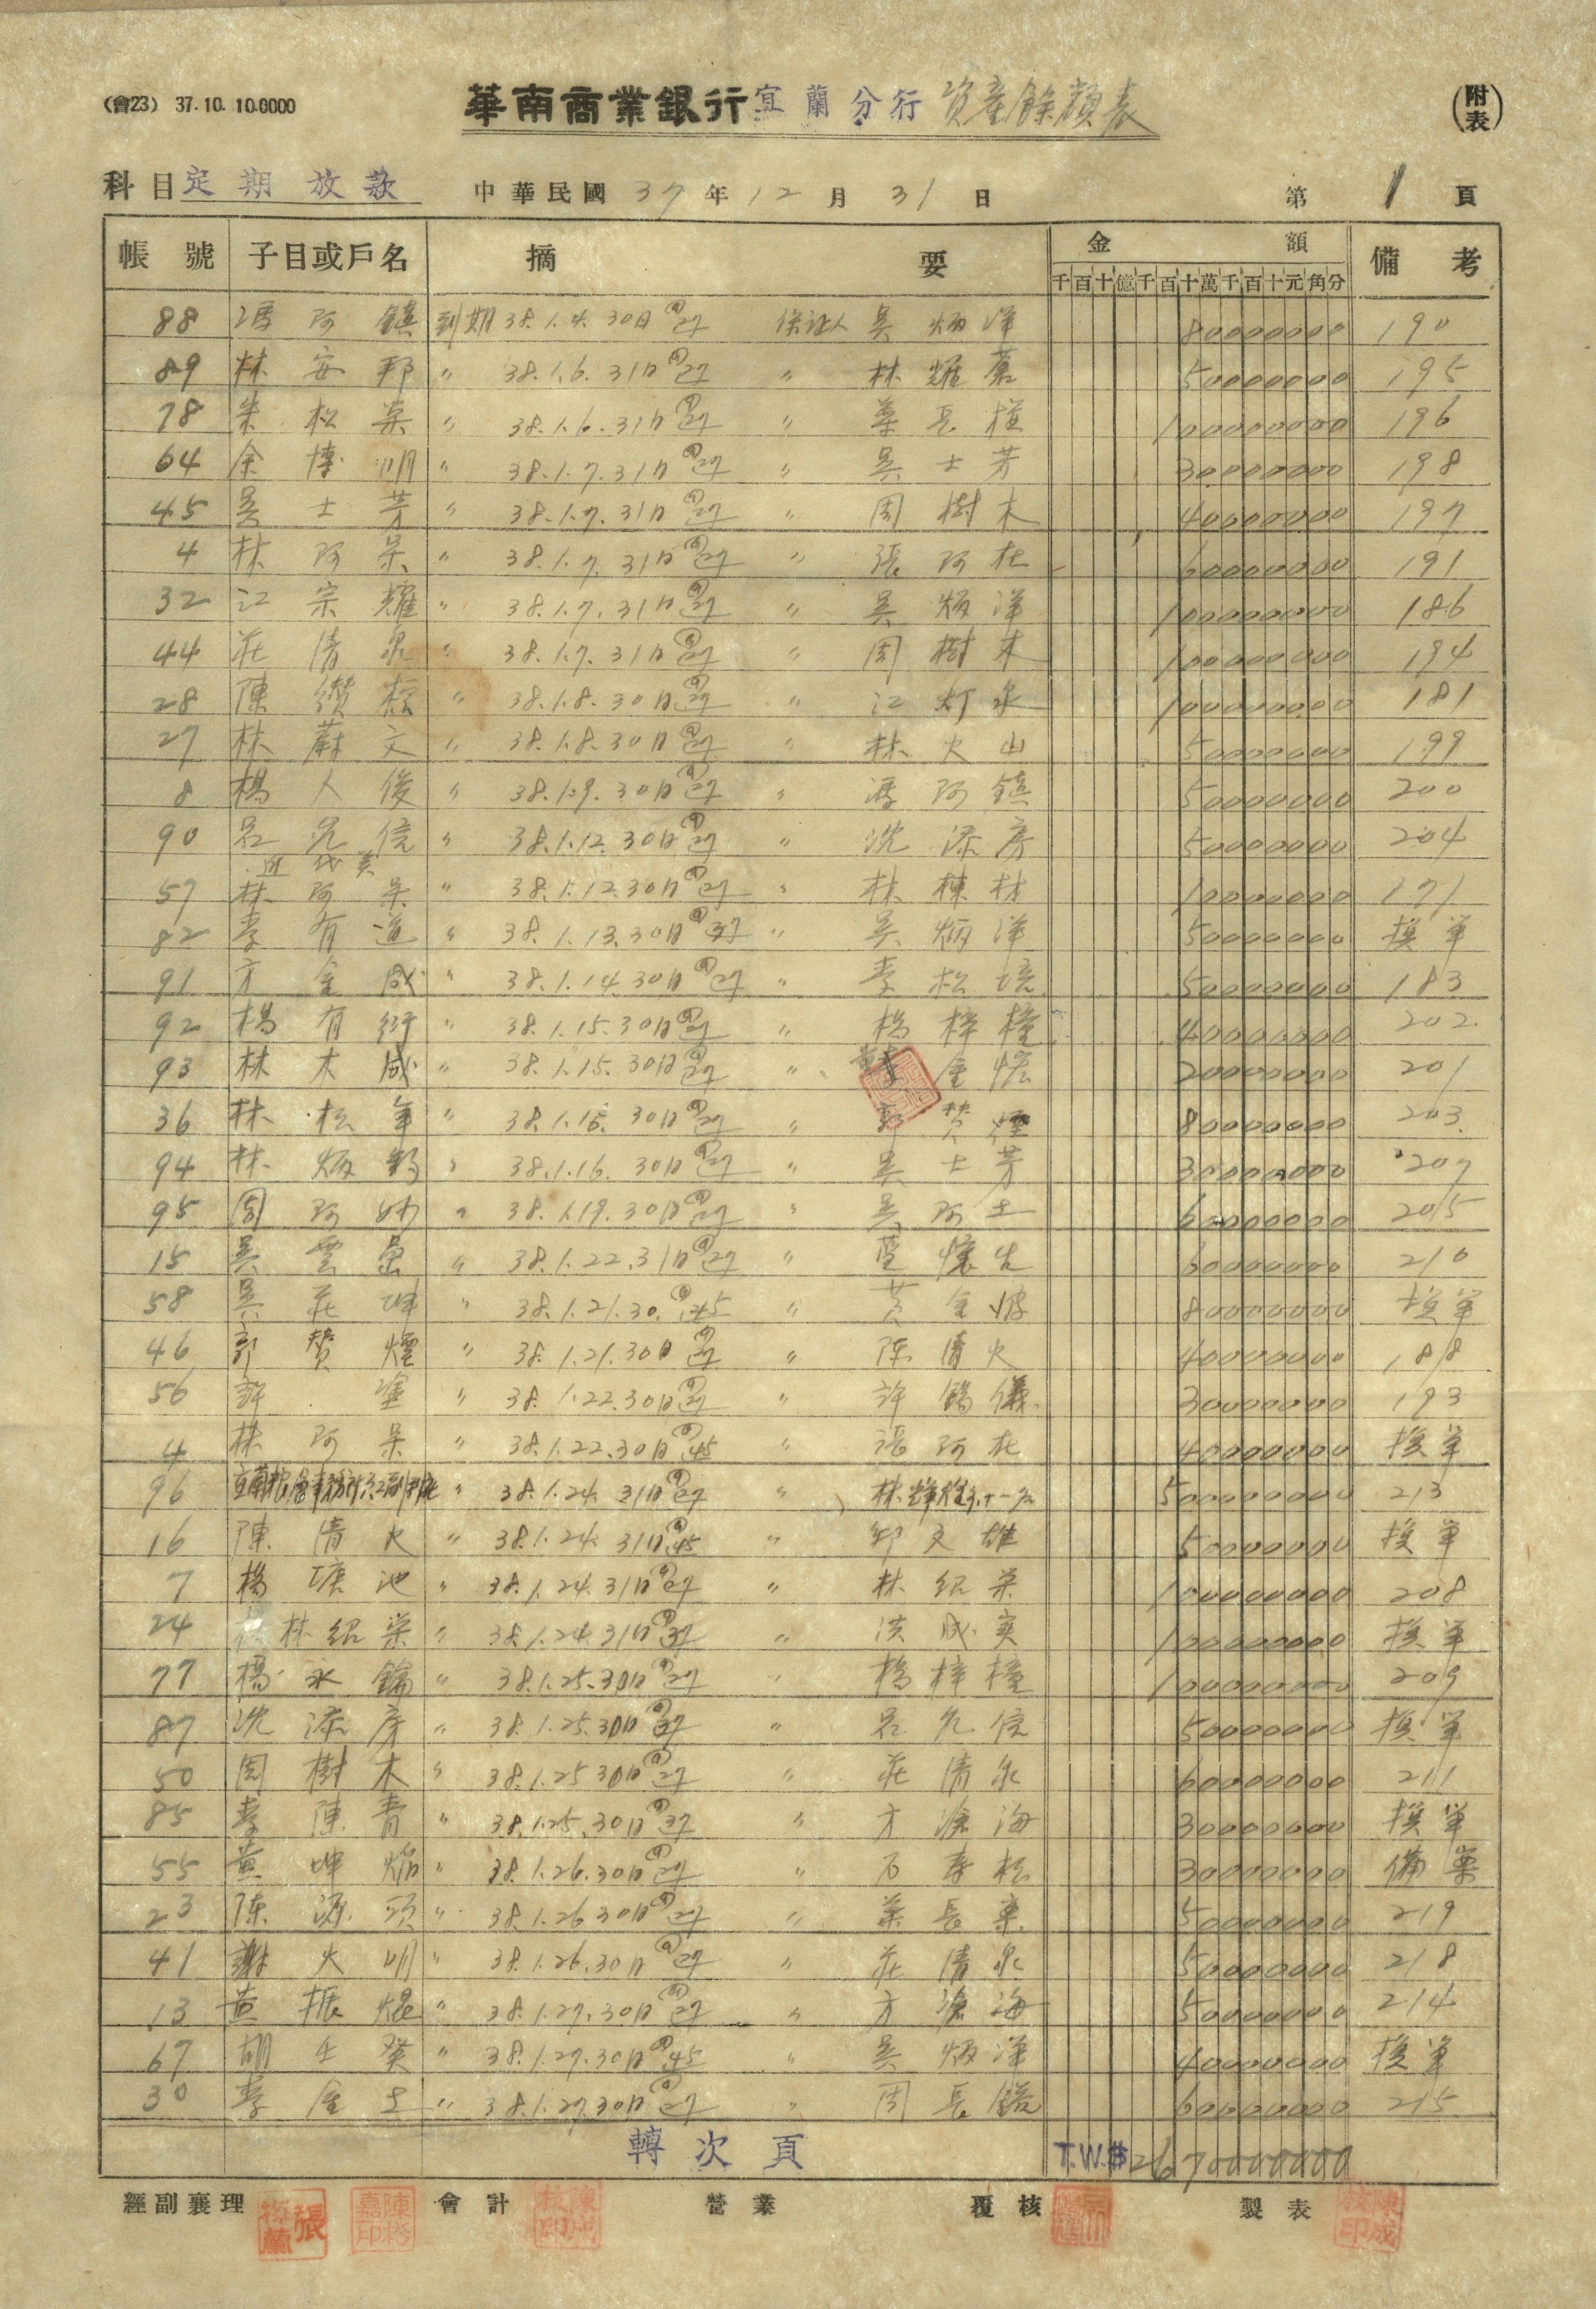 (會23) 37.10.10.0000 華南商業銀行宜蘭分行資產餘額表 (附表)
科目定期放款 中華民國37年12月31日 第1頁
帳號 子目或戶名 摘要 金額 備考
千百十億千百十萬千百十元角分
88 馮阿鎮 到期 38.1.4. 30日 @27 保証人 吳炳洋 80000000 190
89 林安邦 〃 38.1.6. 31日 @27 〃 林耀 50000000 195
78 朱松榮 〃 38.1.6. 31日 @27 〃 100000000 196
64 余博明 〃 38.1.7. 31日 @27 〃 吳士芳 30000000 198
45 吳士芳 〃 38.1.7. 31日 @27 〃 周樹木 40000000 197
4 林阿呆 〃 38.1.7. 31日 @27 〃 張阿在 60000000 191
32 江宗耀 〃 38.1.7. 31日 @27 〃 吳炳洋 100000000 186
44 莊清泉 〃 38.1.7. 31日 @27 〃 周樹木 100000000 194
28 陳纘 〃 38.1.8. 30日 @27 〃 江灯永 100000000 181
27 林蔚文 〃 38.1.8. 30日 @27 〃 林火山 50000000 199
8 楊人俊 〃 38.1.9. 30日 @27 〃 馮阿鎮 50000000 200
90 呂允信 〃 38.1.12. 30日 @27 〃 沈添房 50000000 204
57 林阿呆 〃 38.1.12. 30日 @27 〃 林棟材 10000000 171
82 李有道 〃 38.1.13. 30日 @37 〃 吳炳洋 50000000 換單
91 方金成 〃 38.1.14. 30日 @27 〃 李松 50000000 183
92 楊有 〃 38.1.15. 30日 @27 〃 楊梓橦 40000000 202
93 林木成 〃 38.1.15. 30日 @27 〃 金 20000000 201
36 林松年 〃 38.1.16. 30日 @27 〃 郭贊煙 80000000 203
94 林炳 〃 38.1.16. 30日 @27 〃 吳士芳 30000000 207
95 周阿 〃 38.1.19. 30日 @27 〃 吳阿土 60000000 205
15 吳雲 〃 38.1.22. 31日 @27 〃 藍懷 60000000 210
58 吳莊坤 〃 38.1.21. 30. @45 〃 黃金 80000000 換單
46 郭贊煙 〃 38.1.21. 30日 @27 〃 陳清火 40000000 188
56 許塗 〃 38.1.22. 30日 @27 〃 許錫儀 30000000 193
4 林阿呆 〃 38.1.22. 30日 @45 〃 張阿在 40000000 換單
96 38.1.24. 31日 @27 〃 500000000 213
16 陳清火 〃 38.1.24. 31日 @45 〃 邱文雄 50000000 換單
7 楊塘池 〃 38.1.24. 31日 @27 〃 林紹榮 100000000 208
24 林紹榮 〃 38.1.24. 31日 @37 〃 洪成 100000000 換單
77 楊永鑰 〃 38.1.25. 30日 @27 〃 楊梓橦 100000000 209
87 沈添房 〃 38.1.25. 30日 @37 〃 呂允信 50000000 換單
50 周樹木 〃 38.1.25 30日 @27 〃 莊清泉 60000000 211
85 李陳青 〃 38.1.25. 30日 @37 〃 方滄海 30000000 換單
55 黃坤焰 〃 38.1.26. 30日 @27 〃 石壽松 30000000 備案
23 陳源頭 〃 38.1.26 30日 @27 〃 葉長 50000000 219
41 謝火明 〃 38.1.26. 30日 @27 〃 莊清泉 50000000 218
13 黃振焜 〃 38.1.27. 30日 @27 〃 方滄海 50000000 214
67 胡壬癸 〃 38.1.27. 30日 @45 〃 吳炳洋 40000000 換單
30 李金土 〃 38.1.27. 30日 @27 〃 周長 60000000 215
轉次頁 T.W.$ 2670000000
經副襄理 會計 營業 覆核 製表